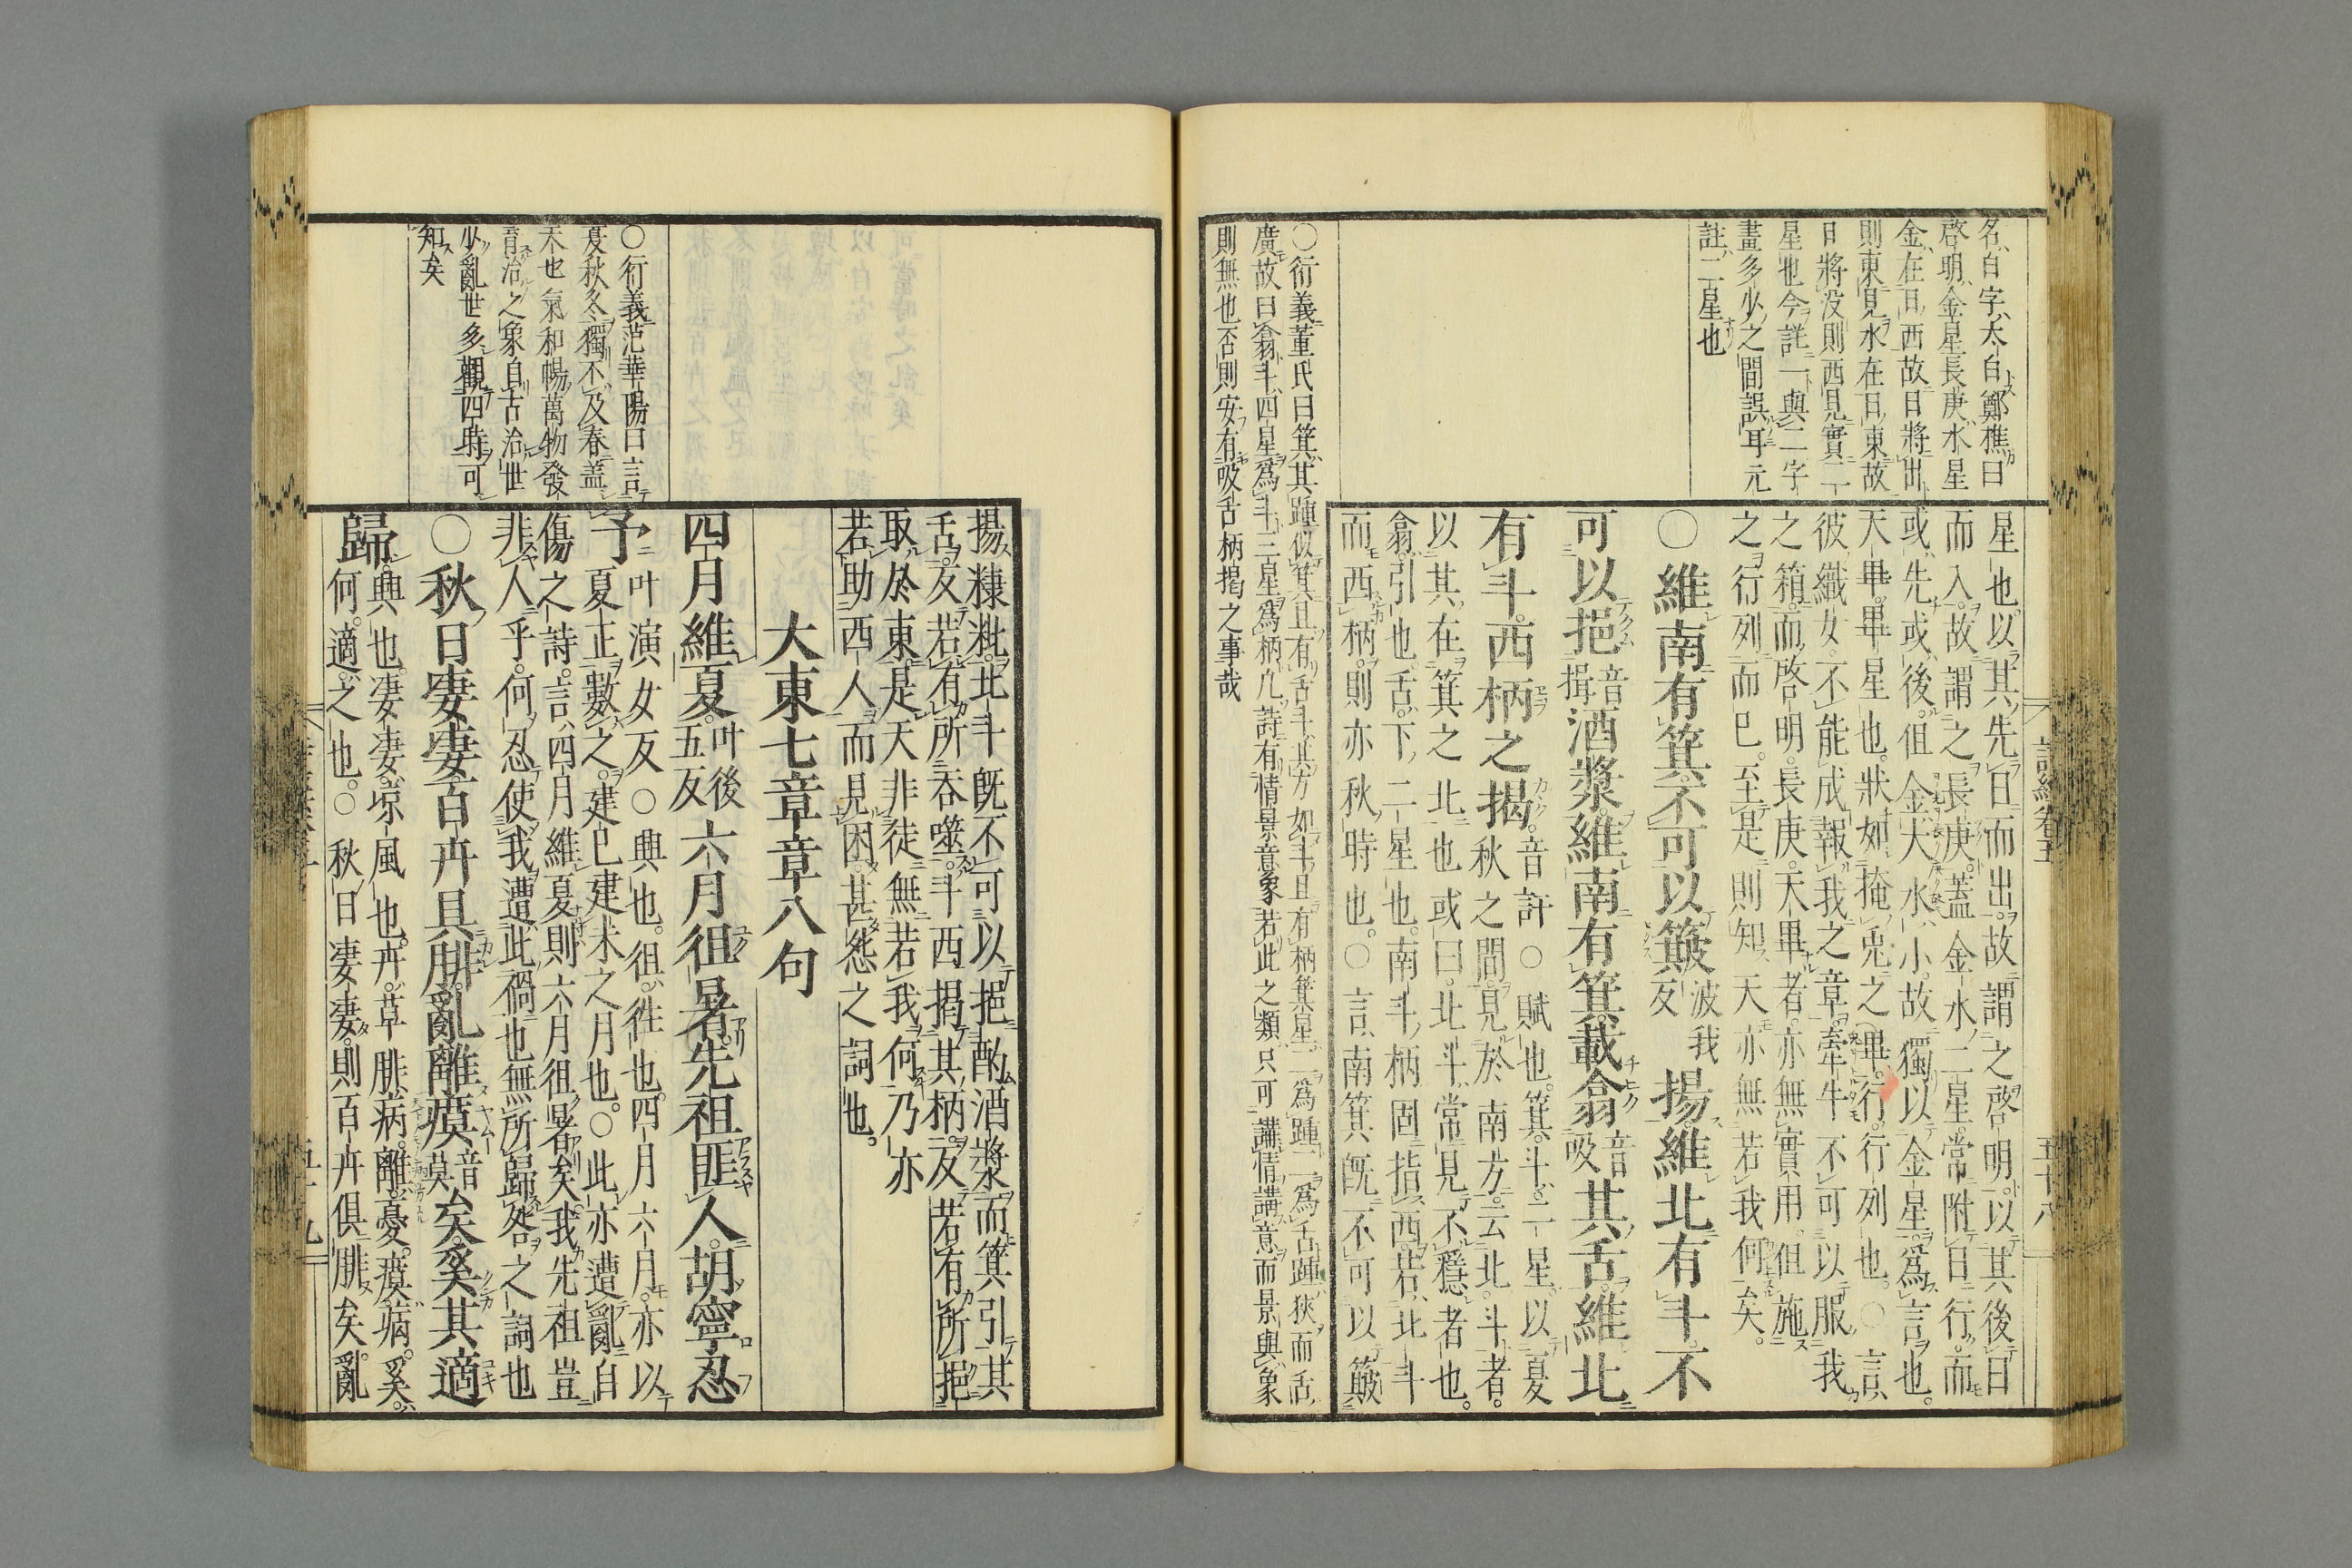 名、白字、太白、鄭樵曰
啓明、金星、長庚、水星
金在日西、故日將出
則東見、水在日東、故
日將沒則西見、實二
星也、今註一與二字
畫多少之間誤耳、元
註、二星也
星也。以其先日而出。故謂之啓明。以其後日
而入。故謂之長庚。蓋金水二星。常附日行。而
或先或後。但金大水小。故獨以金星爲言也。
天畢。畢星也。狀如掩兎之畢。行。行列也。○言
彼織女。不能成報我之章。牽牛不可以服我
之箱。而啓明。長庚。天畢者。亦無實用。但施
之行列而已。至是則知天亦無若我何矣。
○維南有箕。不可以簸波我反揚。維北有斗。不
可以挹音揖酒漿。維南有箕。載翕音吸其舌。維北
有斗。西柄之揭。音訐○賦也。箕。斗。二星。以夏
秋之間。見於南方。云北斗者。
以其在箕之北也。或曰。北斗。常見不隱者也。
翕。引也。舌。下二星也。南斗柄固指西。若北斗
而西柄。則亦秋時也。○言南箕既不可以簸
○衍義董氏曰箕其踵似箕且有舌斗其方如斗且有柄箕星二爲踵二爲舌踵狹而舌
廣故曰翕斗四星爲斗三星爲柄凡詩有情景意象若此之類只可講情講意而景與象
則無也否則安有吸舌柄揭之事哉
揚糠粃。北斗既不可以挹酌酒漿。而箕引其
舌。反若有所吞噬。斗西揭其柄。反若有所挹
取於東。是天非徒無若我何。乃亦
若助西人而見困。甚怨之詞也。
大東七章章八句
四月維夏。叶後五反六月徂暑。先祖匪人。胡寧忍
予叶演女反○興也。徂。往也。四月六月。亦以
夏正數之。建巳建未之月也。○此亦遭亂自
傷之詩。言四月維夏。則六月徂暑矣。我先祖豈
非人乎。何忍使我遭此禍也。無所歸咎之詞也
○秋日淒淒。百卉具腓。亂離瘼音莫矣。奚其適
歸。興也。淒淒。凉風也。卉。草。腓。病。離。憂。瘼。病。奚。
何。適。之也。○秋日淒淒。則百卉俱腓矣。亂
○衍義范華陽曰言
夏秋冬獨不及春蓋
天也氣和暢萬物發
育治之象自古治世
少亂世多觀四時可
知矣